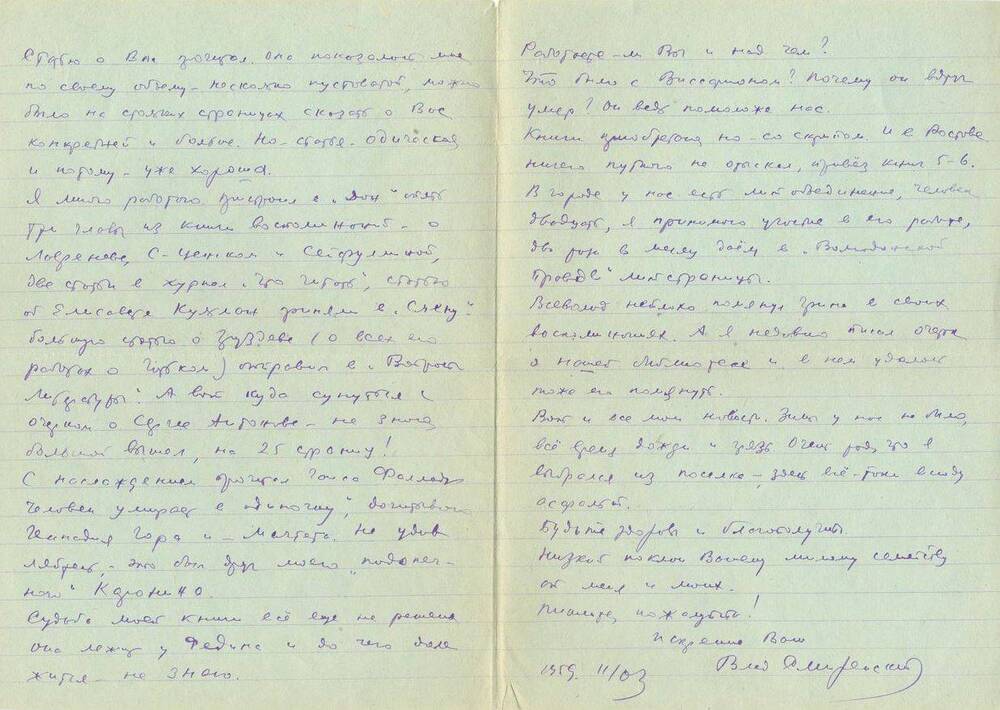 Статью о Вас прочитал. Она показалась мне
по своему объему – несколько пустоватой, можно
было на стольких страницах сказать о Вас
конкретней и больше. Но – статья – одическая
и потому – уже хороша.
Я много работаю. Пристроил в „Дон“ опять
три главы из книги воспоминаний – о
Лавреневе, С-Ценском и Сейфуллиной,
две статьи в журнал „Что читать“, статью
об Елисавете Кульман приняли в „Смену“
большую статью о Груздеве (о всех его
работах о Горьком) отправил в „Вопросы
Литературы“. А вот куда сунуться с
очерком о Сергее Антонове – не знаю,
большой вышел, на 25 страниц!
С наслаждением прочитал Ганса Фаллады
„Человек умирает в одиночку“, дочитываю
Геннадия Гора и – Мачтета. Не удив
ляйтесь, – это был друг моего „подопеч-
ного“ Каронина.
Судьба моей книги всё еще не решена
она лежит у Федина и до чего доле
жится – не знаю.
Работаете-ли Вы и над чем?
Что было с Виссарионом? Почему он вдруг
умер? Он ведь помоложе нас.
Книги приобретаю но – со скрипом. И в Ростове
ничего путного не отыскал, привёз книг 5–6.
В городе у нас есть лит. объединение, человек
двадцать, я принимаю участие в его работе,
два раза в месяц даём в „Волгодонской
Правде“ литстраницы.
Всеволод неплохо помянул Грина в своих
воспоминаниях. А я недавно писал очерк
о нашей библиотеке и в нем удалось
тоже его помянуть.
Вот и все мои новости. Зимы у нас не было,
всё время дожди и грязь. Очень рад, что я
выбрался из поселка – здесь всё-таки всюду
асфальт.
Будьте здоровы и благополучны.
Низкий поклон Вашему милому семейству
от меня и моих.
Пишите, пожалуйста!
Искренне Ваш
1959. 11/03 Влад Смиренский